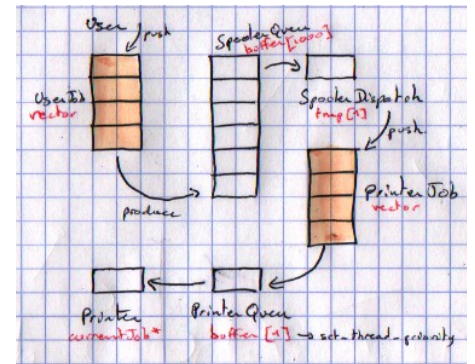 User
push
Spooler Queu
buffer [1000]
UserJob
vector
Spooler Dispatch
tmp [1]
push
produce
Printer Job
vector
Printer
currentJob*
Printer Queu
buffer [1] → set_thread_priority